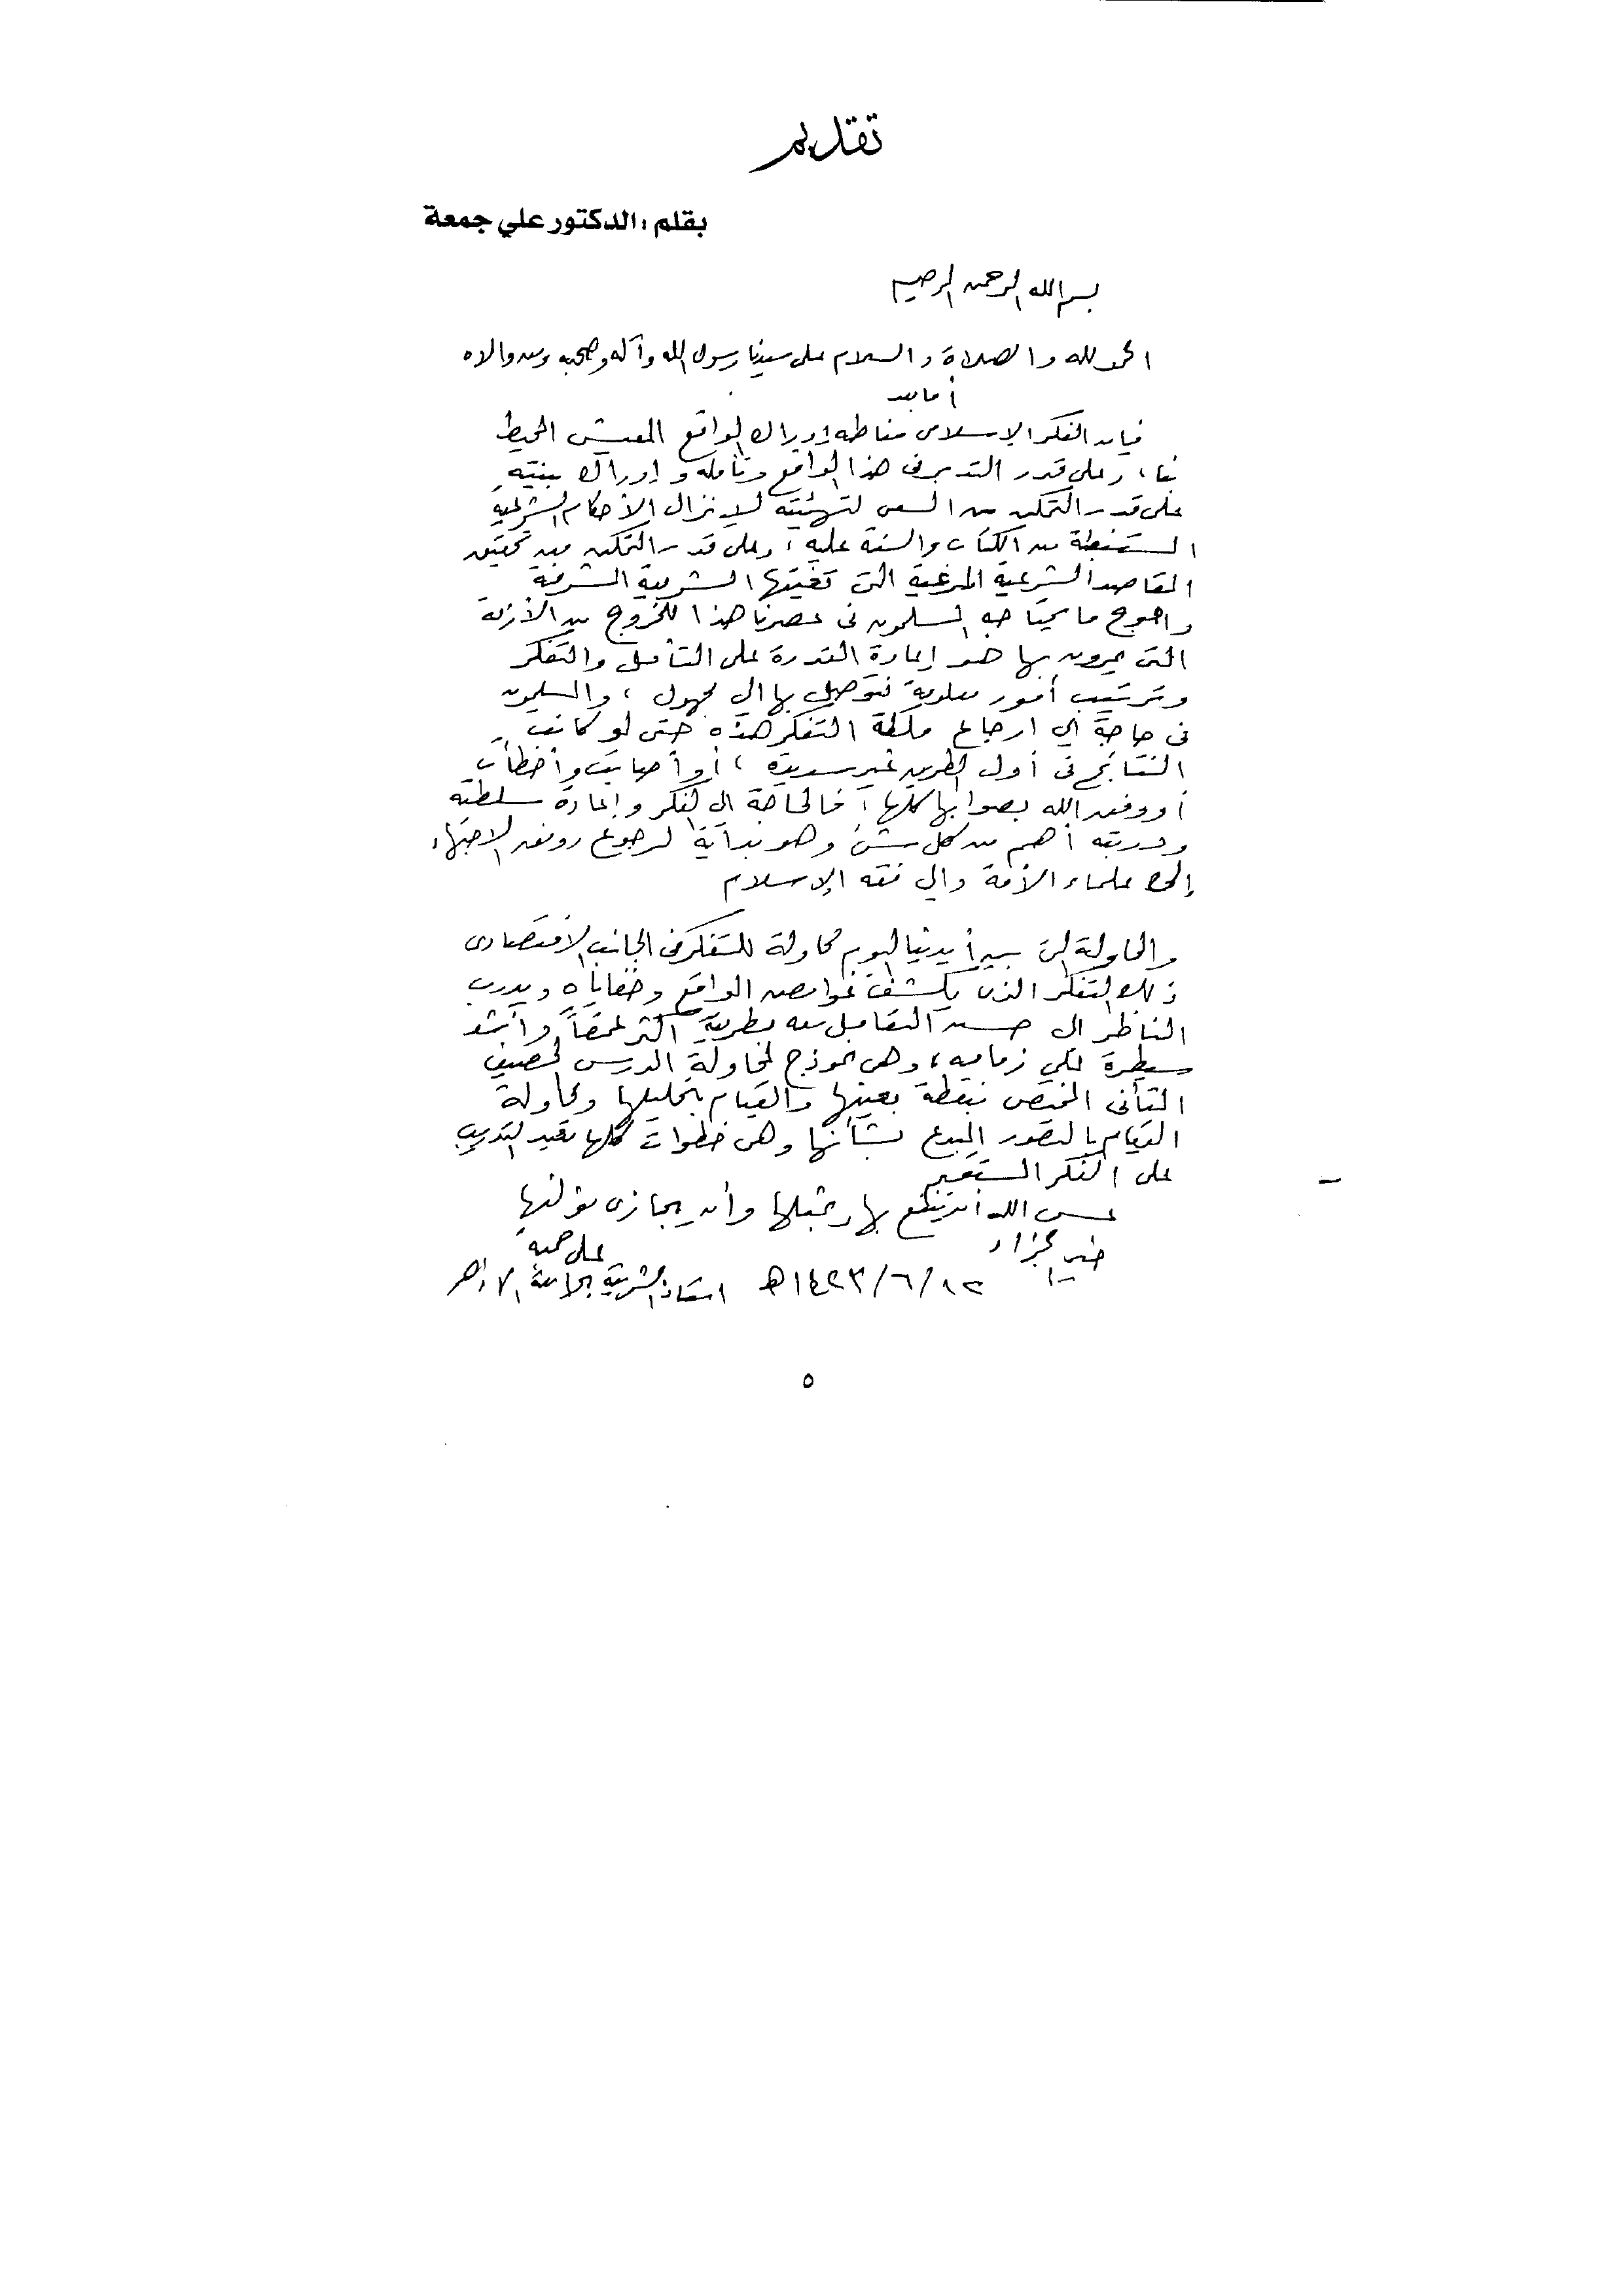 تقديم
بقلم : الدكتور علي جمعة
بسم الله الرحمن الرحيم
الحمد لله والصلاة والسلام على سيدنا رسول الله وآله وصحبه ومن والاه
أما بعد
فإن الفكر الإسلامى مناطه إدراك الواقع المعيش المحيط
بنا، وعلى قدر التدبر فى هذا الواقع وتأمله وإدراك بنيته
على قدر التمكن من السعى لتهيئته لإنزال الأحكام الشرعية
المستنبطة من الكتاب والسنة عليه، وعلى قدر التمكن من تحقيق
المقاصد الشرعية المرعية التى تغيتها الشريعة الشريفة
واحوج ما يحتاجه المسلمون فى عصرنا هذا للخروج من الأزمة
التى يمرون بها هو إعادة القدرة على التأمل والتفكر
وترتيب أمور معلومة نتوصل بها الى مجهول، والمسلمون
فى حاجة الى ارجاع ملكة التفكر هذه حتى لو كانت
النتائج فى أول الطريق غير سديدة، أو أصابت وأخطأت
أو وفق الله بصوابها كلها، فالحاجة الى الفكر وإعادة سلطته
ودربته أهم من كل شئ وهو بداية لرجوع رونق الاجتهاد
إلى علماء الأمة والى فقه الإسلام
والمحاولة التى بين أيدينا اليوم محاولة للتفكر فى الجانب الاقتصادى
ذلك التفكر الذى يكشف غوامض الواقع وخفاياه ويدرب
الناظر الى حسن التعامل معه بطريقة أكثر عمقاً وأشد
سيطرة على زمامه، وهى نموذج لمحاولة الدرس الحصيف
المتأنى المختص بنقطة بعينها والقيام بتحليلها ومحاولة
القيام بالتصور المبدع بشأنها وهى خطوات كلها تفيد التدريب
على الفكر المستنير
عسى الله أن ينفع بها وبمثلها وأن يجازى مؤلفها
خير الجزاء
على جمعة
١٢/٦/١٤٢٣هـ استاذ الشريعة بجامعة الأزهر
٥